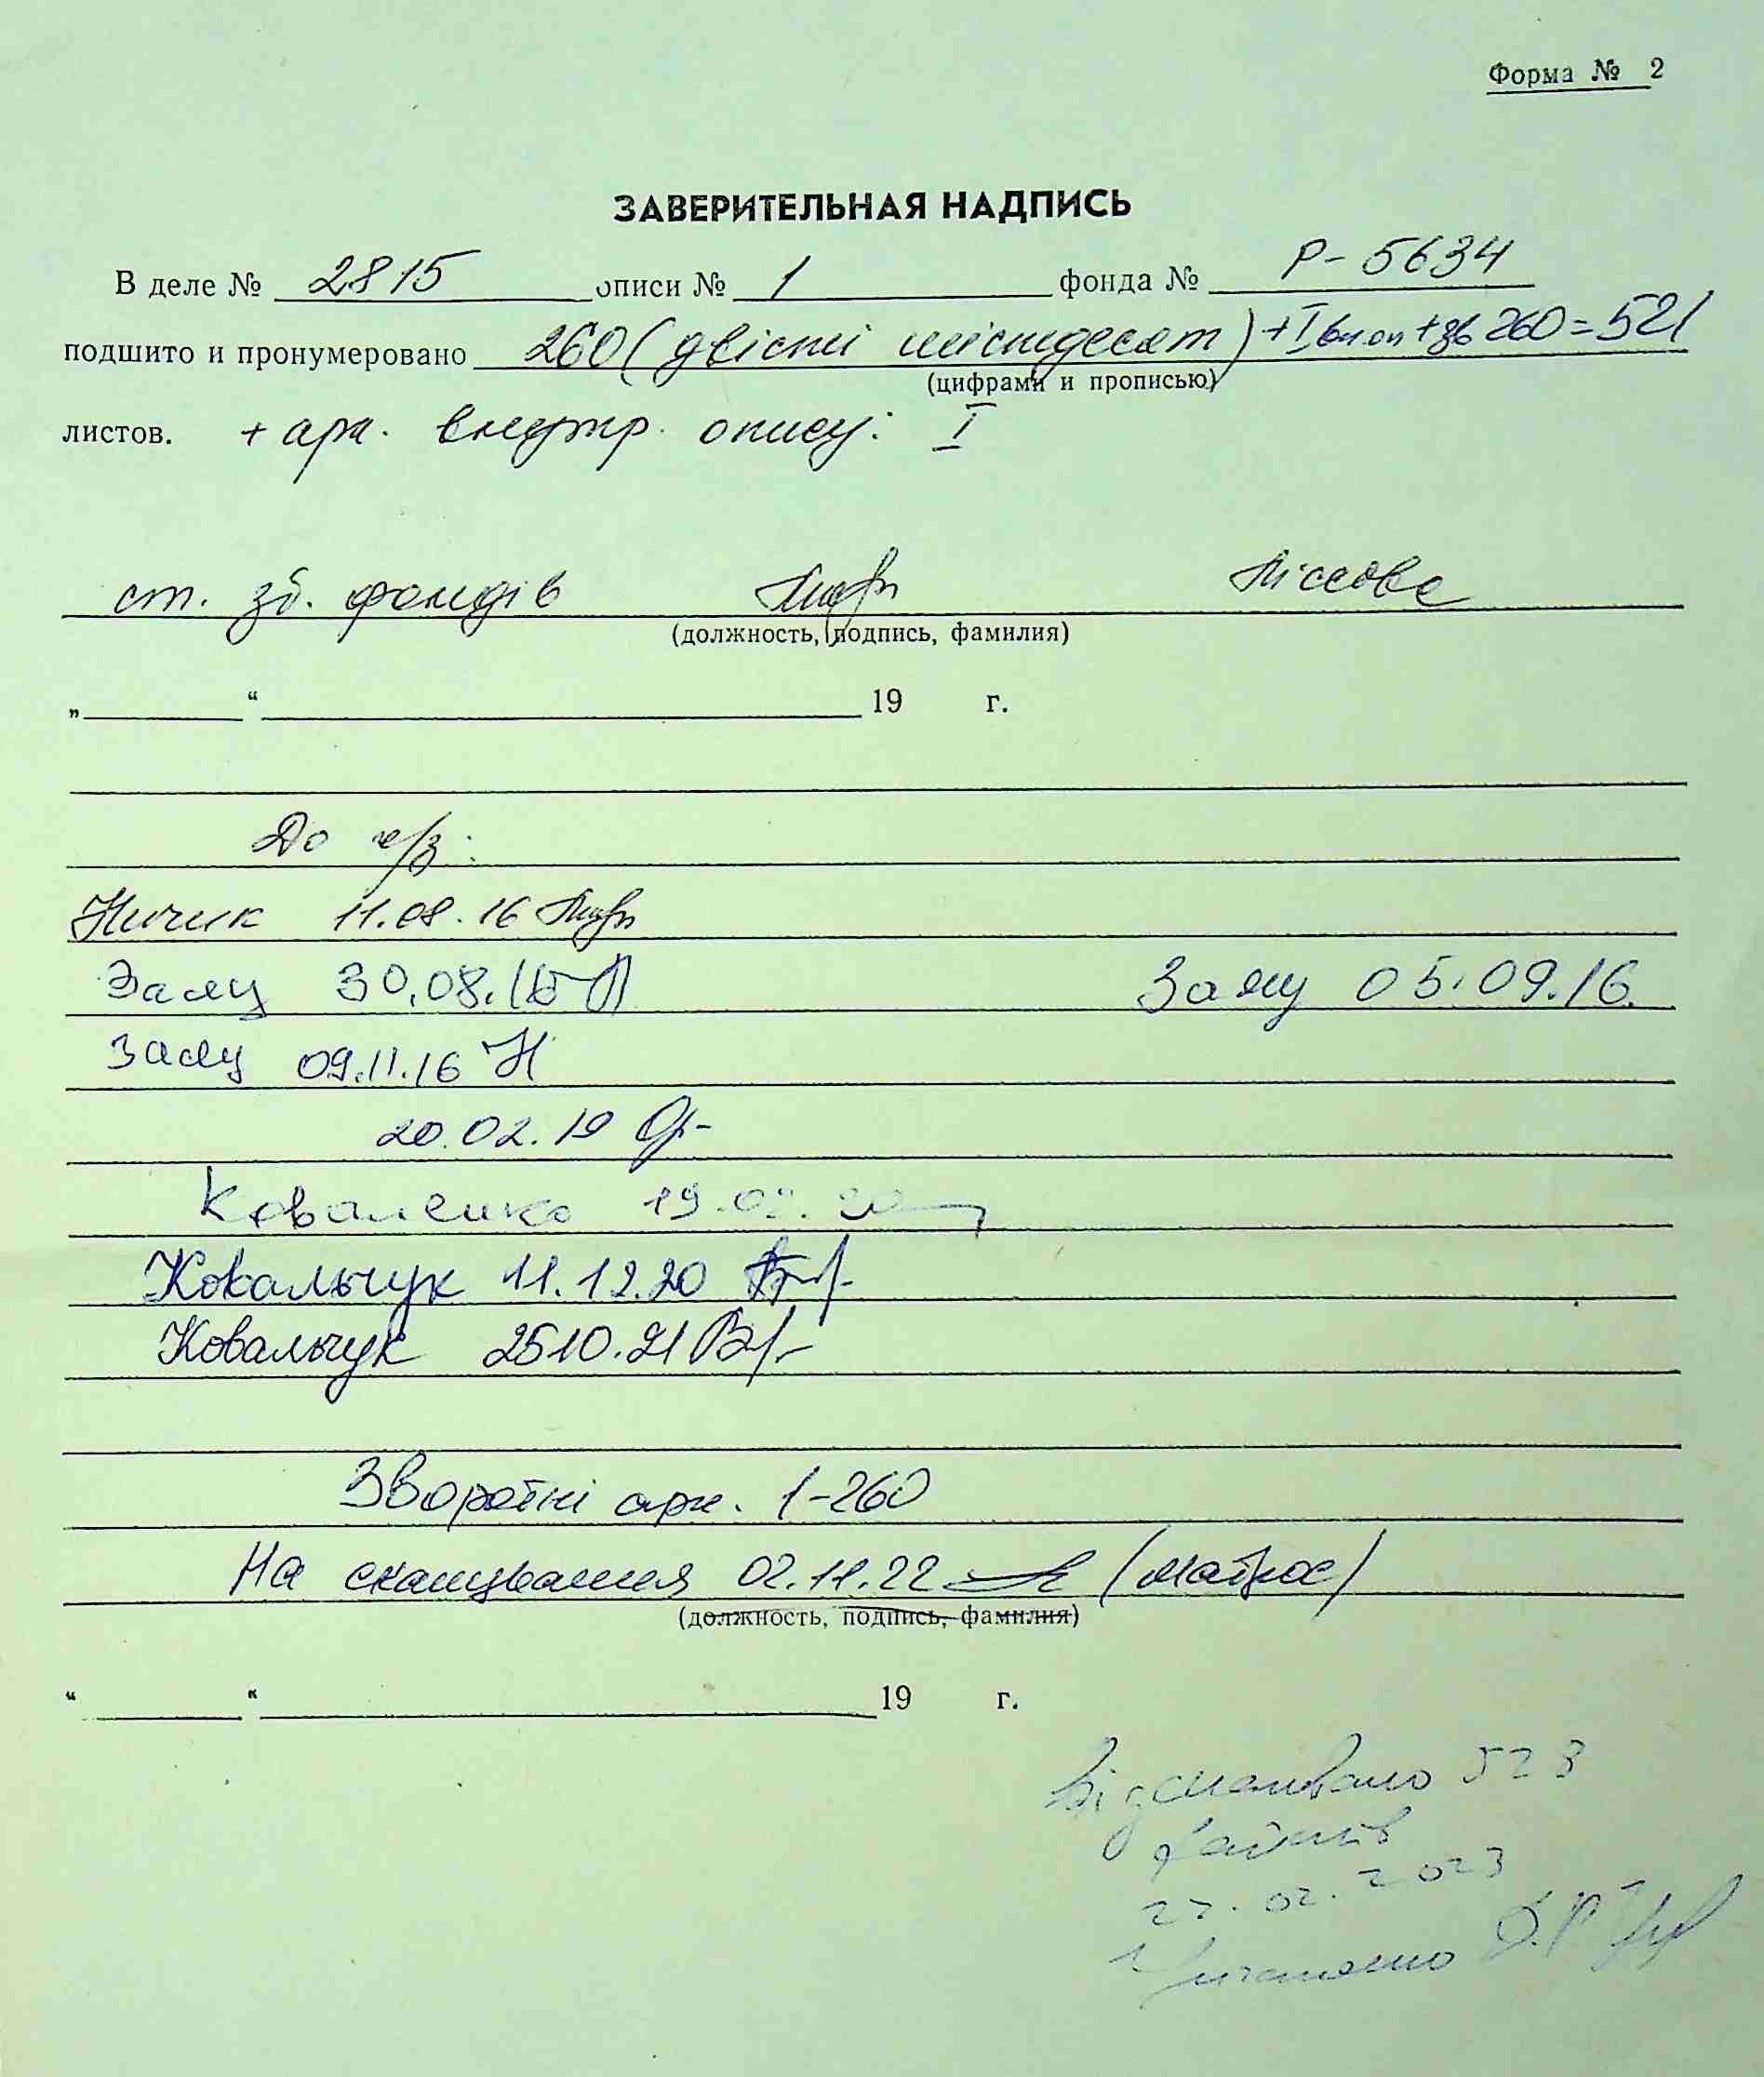 Форма № 2
ЗАВЕРИТЕЛЬНАЯ НАДПИСЬ
В деле № 2815 описи № 1 фонда № Р-5634
подшито и пронумеровано 260 (двісті шістдесят) + I вн оп + зв 260 = 521
(цифрами и прописью)
листов. + арк. внутр. опису: I
ст. зб. фондів
(должность, подпись, фамилия)
„ “ 19 г.
До ч/з:
Ничик 11.08.16
Залу 30.08.16 Залу 05.09.16
Залу 09.11.16
20.02.19
Коваленко 19.02.20
Ковальчук 11.12.20
Ковальчук 25 10.21
Зворотні арк. 1-260
На сканування 02.11.22 (Матрос)
(должность, подпись, фамилия)
“ “ 19 г.
Відскановано 523
файлів
27.02.2023